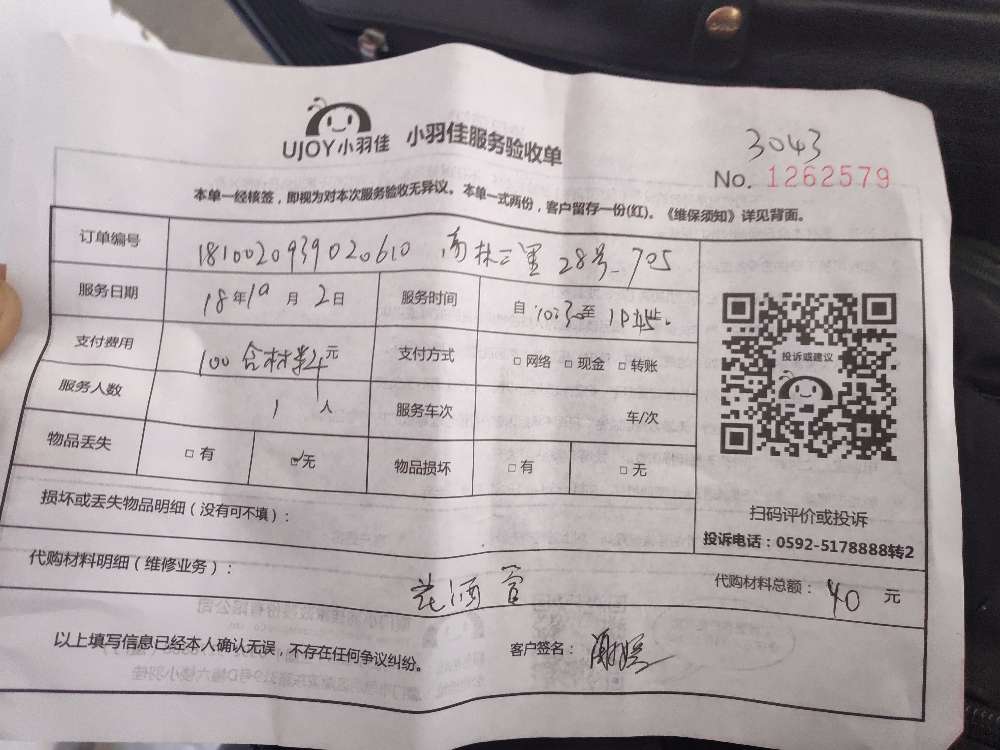 UJOY小羽佳 小羽佳服务验收单
3043
No. 1262579
本单一经核签，即视为对本次服务验收无异议。本单一式两份，客户留存一份(红)。《维保须知》详见背面。
订单编号 1810020939020610 南林三里 28号 705
服务日期 18年10月2日 服务时间 自10:30至
支付费用 100含材料元 支付方式 □网络 □现金 □转账
服务人数 1人 服务车次 车/次
物品丢失 □有 ☑无 物品损坏 □有 □无
投诉或建议
扫码评价或投诉
投诉电话：0592-5178888转2
损坏或丢失物品明细（没有可不填）：
代购材料明细（维修业务）： 花洒管 代购材料总额： 40 元
以上填写信息已经本人确认无误，不存在任何争议纠纷。 客户签名：